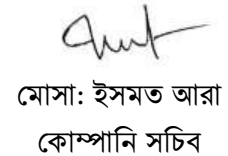 মোসা: ইসমত আরা
কোম্পানি সচিব